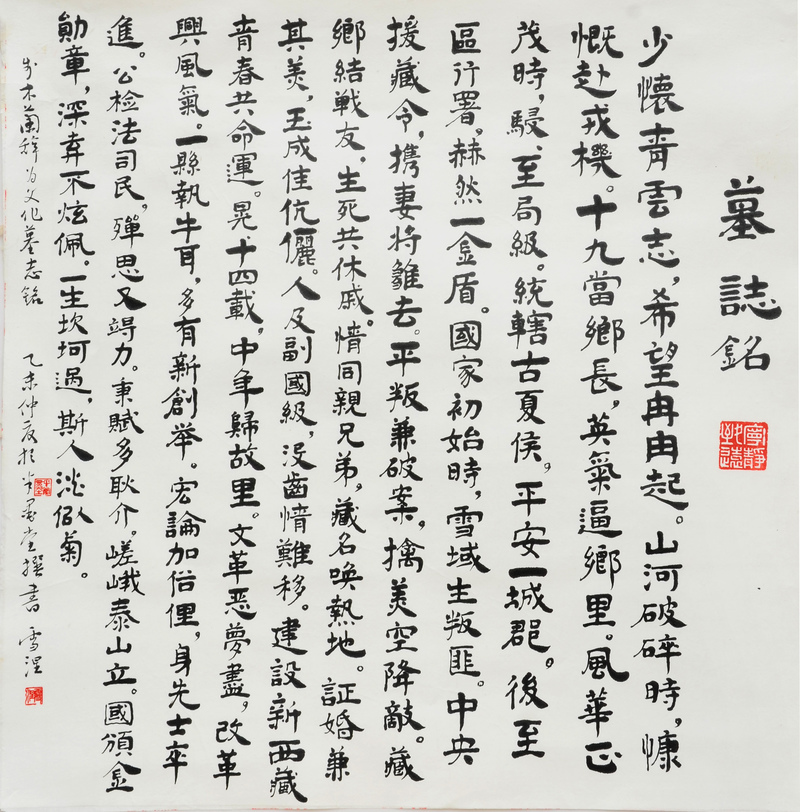 墓誌銘
寧靜致遠
少懷青雲志，希望冉冉起。山河破碎時，慷
慨赴戎機。十九當鄉長，英氣逼鄉里。風華正
茂時，駸、至局級。統轄古夏侯，平安一城郡。後至
區行署，赫然一金盾。國家初始時，雪域生叛匪。中央
援藏令，携妻將雛去。平叛兼破案，擒美空降敵。藏
鄉結戰友，生死共休戚。情同親兄弟，藏名喚熱地。証婚兼
其美，玉成佳伉儷。人及副國級，没齒情難移。建設新西藏
青春共命運。晃十四載，中年歸故里。文革恶夢盡，改革
興風氣。一縣執牛耳，多有新創举。宏論加俗俚，身先士卒
進。公检法司民，殫思又竭力。秉賦多耿介。嵯峨泰山立。國頒金
勛章，深弆不炫佩。一生坎坷過，斯人淡似菊。
步木蘭辞为父作墓志銘
乙未仲夏於墨堂撰書 雪涅